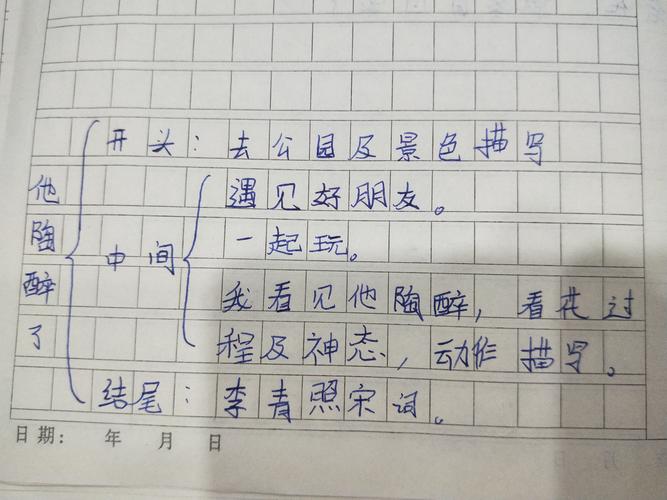 开头：去公园及景色描写
他陶醉了
中间
遇见好朋友。
一起玩。
我看见他陶醉，看花过
程及神态，动作描写。
结尾：李青照宋词。
日期： 年 月 日